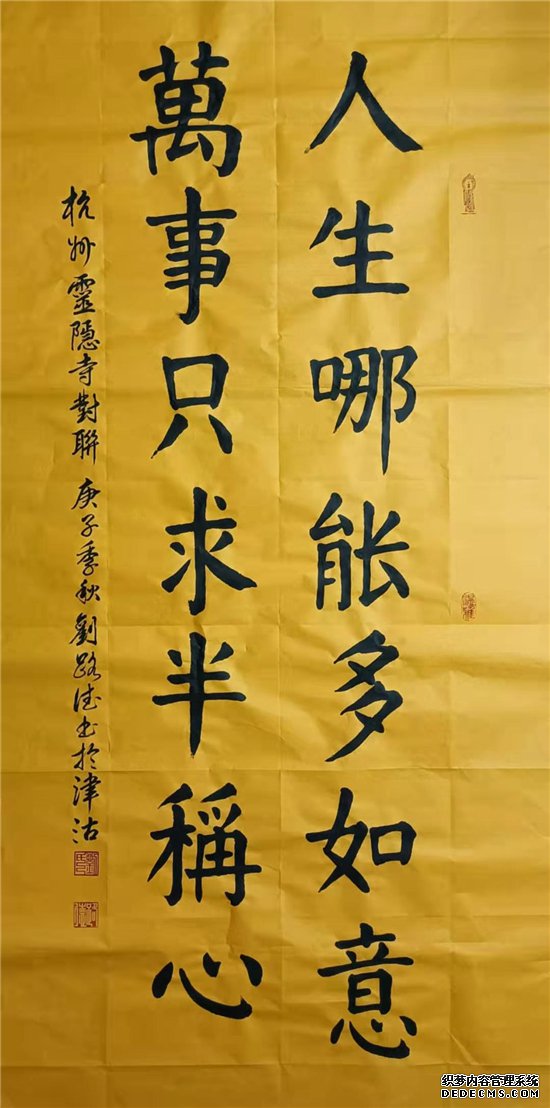 人生哪能多如意
萬事只求半稱心
杭州靈隱寺對聯 庚子季秋劉路德书於津沽
织梦内容管理系统
DEDECMS.COM